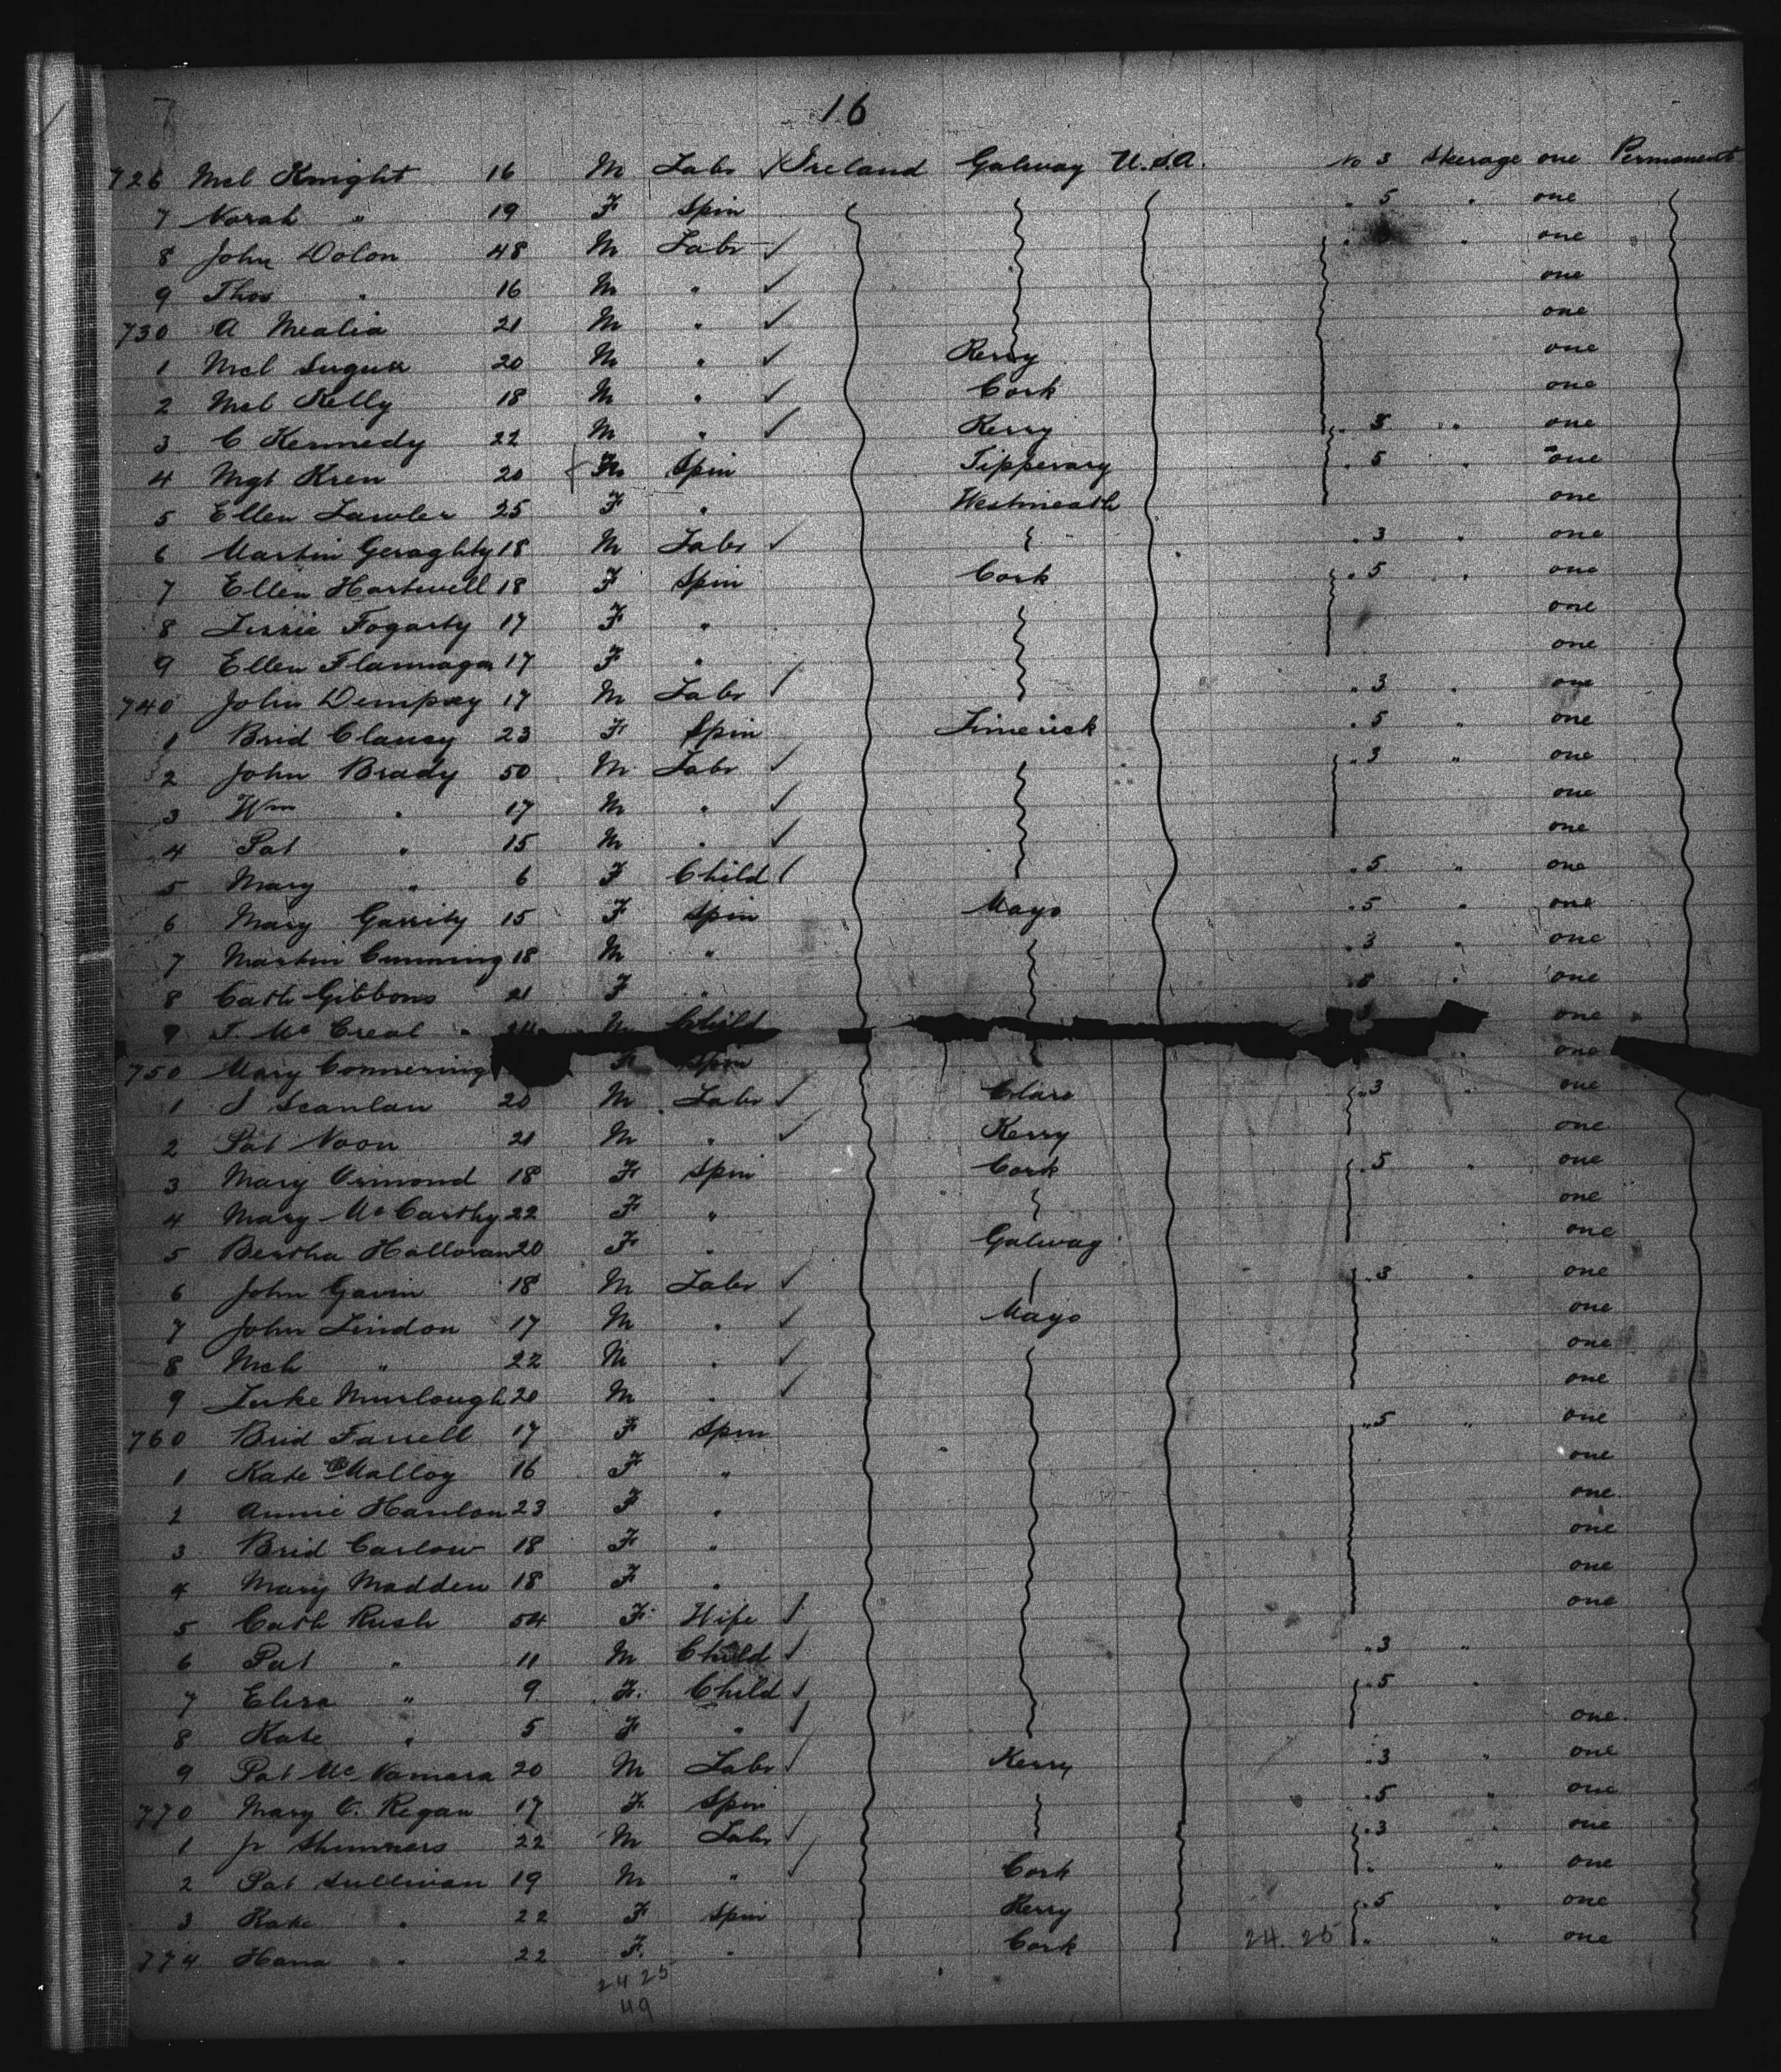 16
726 Mcl Knight 16 M Labr Ireland Galway U.S.A. No 3 Skerage one Permanent
7 Norah " 19 F Spin . 5 . one
8 John Dolon 48 M Labr ✓ . . one
9 Thos . 16 M " ✓ one
730 A Mealia 21 M " ✓ one
1 Mcl 20 M " ✓ Kerry one
2 Mcl Kelly 18 M " ✓ Cork one
3 C Kennedy 22 M " ✓ Kerry . 3 " one
4 Mgt Kren 20 Spin Tipperary . 5 . one
5 Ellen Lawler 25 F " Westmeath one
6 Martin Geraghty 18 M Labr ✓ . 3 . one
7 Ellen Hartwell 18 F Spin Cork . 5 . one
8 Lizzie Fogarty 17 F " one
9 Ellen Flannagan 17 F " one
740 John Dempsey 17 M Labr ✓ . 3 . one
1 Brid Clancy 23 F Spin Limerick . 5 " one
2 John Brady 50 M Labr ✓ . 3 " one
3 Wm " 17 M " ✓ one
4 Pat " 15 M " ✓ one
5 Mary " 6 F Child ✓ . 5 " one
6 Mary Garrity 15 F Spin Mayo . 5 " one
7 Martin Cunning 18 M " . 3 " one
8 Cath Gibbons 21 F " . one
9 J. Mc Creal M Child one
750 Mary Connering F Spin one
1 J Scanlan 20 M Labr ✓ Clare . 3 " one
2 Pat Noon 21 M " ✓ Kerry one
3 Mary Ormond 18 F Spin Cork . 5 " one
4 Mary Mc Carthy 22 F " one
5 Bertha Halloran 20 F " Galway one
6 John Gavin 18 M Labr ✓ . 3 . one
7 John Lindon 17 M " ✓ Mayo one
8 Mch " 22 M " ✓ one
9 Luke Murlough 20 M " ✓ one
760 Brid Farrell 17 F Spin " 5 " one
1 Kate Malloy 16 F " one
2 Annie Hanlon 23 F " one
3 Brid Carlow 18 F " one
4 Mary Madden 18 F " one
5 Cath Rush 54 F Wife ✓ one
6 Pat " 11 M Child ✓ " 3 "
7 Eliza " 9 F Child ✓ . 5 .
8 Kate " 5 F " ✓ one
9 Pat Mc Namara 20 M Labr ✓ Kerry . 3 " one
770 Mary O. Regan 17 F Spin . 5 " one
1 Jr Shinners 22 M Labr ✓ . 3 " one
2 Pat Sullivan 19 M " ✓ Cork . " one
3 Kate " 22 F Spin Kerry . 5 . one
774 Hana " 22 F " Cork 24. 25 . " one
24 25
49